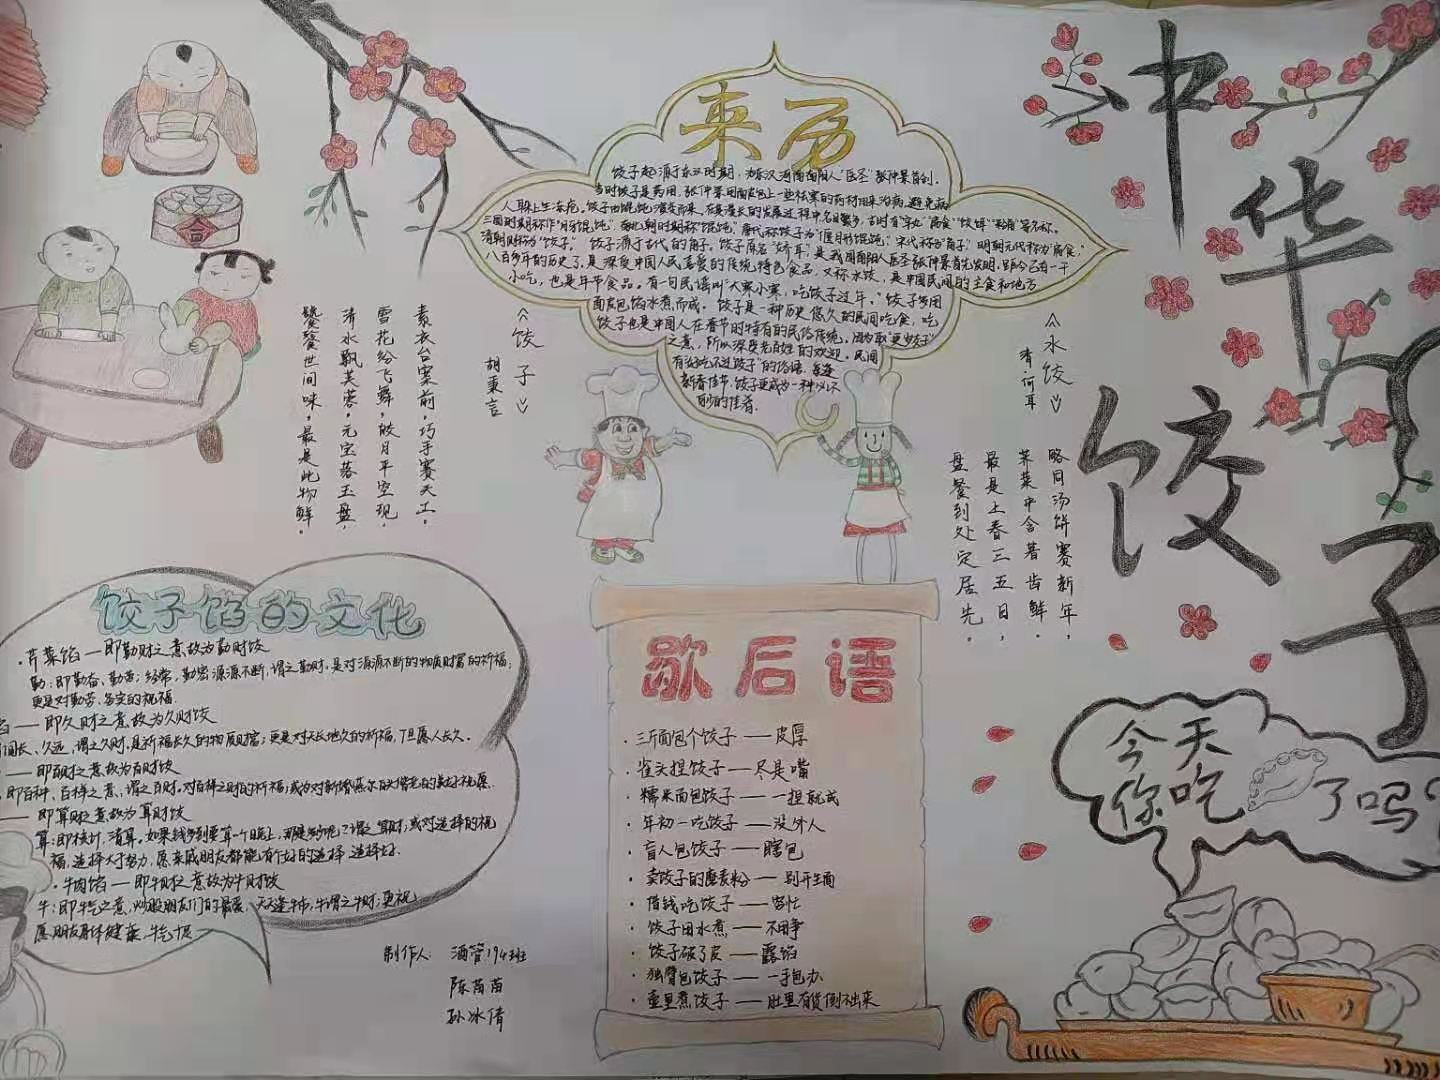 中华饺子
来历
饺子起源于东汉时期，为东汉河南南阳人"医圣"张仲景首创。
当时饺子是药用，张仲景用面皮包上一些祛寒的药材用来治病，避免病
人耳朵上生冻疮。饺子由馄饨演变而来，在其漫长的发展过程中名目繁多，古时有
三国时期称作"月牙馄饨"，南北朝时期称"馄饨"，唐代称饺子为"偃月形馄饨"，宋代称为"角子"，明朝元代称为"扁食"；
清朝则称为"饺子"。饺子源于古代的角子。饺子原名"娇耳"，是我国南阳人医圣张仲景首先发明，距今已有一千
八百多年的历史了，是深受中国人民喜爱的传统特色食品，又称水饺，是中国民间的主食和地方
小吃，也是年节食品。有一句民谣叫"大寒小寒，吃饺子过年。"饺子多用
面皮包馅水煮而成。饺子是一种历史悠久的民间吃食，
饺子也是中国人在春节时特有的民俗传统，因为取"更岁交子"
之意，所以深受老百姓的欢迎，民间
有"好吃不过饺子"的俗语，每逢
新春佳节，饺子更成为一种必不
可少的佳肴。
《水饺》
清何耳
略同汤饼赛新年，
荠菜中含著齿鲜。
最是上春三五日，
盘餐到处定居先。
《饺子》
胡秉言
素衣台案前，巧手赛天工，
雪花纷飞舞，皎月平空现，
清水飘芙蓉，元宝落玉盘，
饕餮世间味，最是此物鲜。
饺子馅的文化
·芹菜馅——即勤财之意故为勤财饺
勤：即勤奋、勤劳；经常，勤密源源不断，谓之勤财，是对源源不断的物质财富的祈福；
更是对勤劳、务实的祝福
——即久财之意故为久财饺
间长、久远，谓之久财，是祈福长久的物质财富；更是对天长地久的祈福，但愿人长久。
——即百财之意故为百财饺
，即百种、百样之意，谓之百财，对百样之财的祈福；或为对新婚燕尔百头偕老的美好祝愿
——即算财之意故为算财饺
算：即核计、清算，如果钱多到要算一个晚上，那是多少呢？谓之算财，或对选择的祝
福，选择大于努力，愿亲戚朋友都能有个好的选择
·牛肉馅——即牛财之意故为牛财饺
牛：即牛气之意，炒股朋友们的最爱，天天逢牛市，牛谓之牛财；更祝
愿朋友身体健康，牛气
制作人：酒管194班
陈苗苗
孙冰倩
歇后语
·三斤面包个饺子——皮厚
·雀头捏饺子——尽是嘴
·糯米面包饺子——一捏就成
·年初一吃饺子——没外人
·盲人包饺子——瞎包
·卖饺子的磨麦粉——别开生面
·借钱吃饺子——穷忙
·饺子用水煮——不用争
·饺子破了皮——露馅
·独臂包饺子——一手包办
·壶里煮饺子——肚里有货倒不出来
今天
你吃了吗？